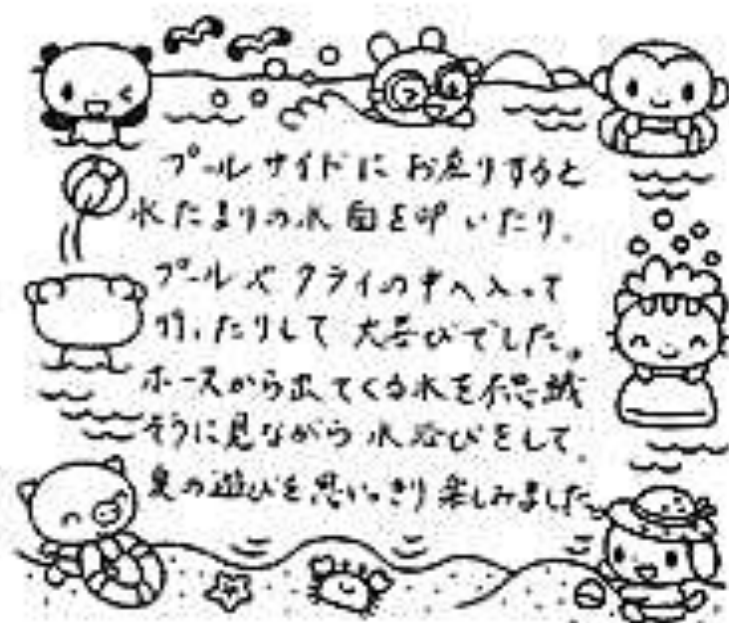 プールサイドにお座りすると
水たまりの水面を叩いたり、
プールやタライの中へ入って
行ったりして大喜びでした。
ホースから出てくる水を不思議
そうに見ながら水浴びをして、
夏の遊びを思いっきり楽しみました。